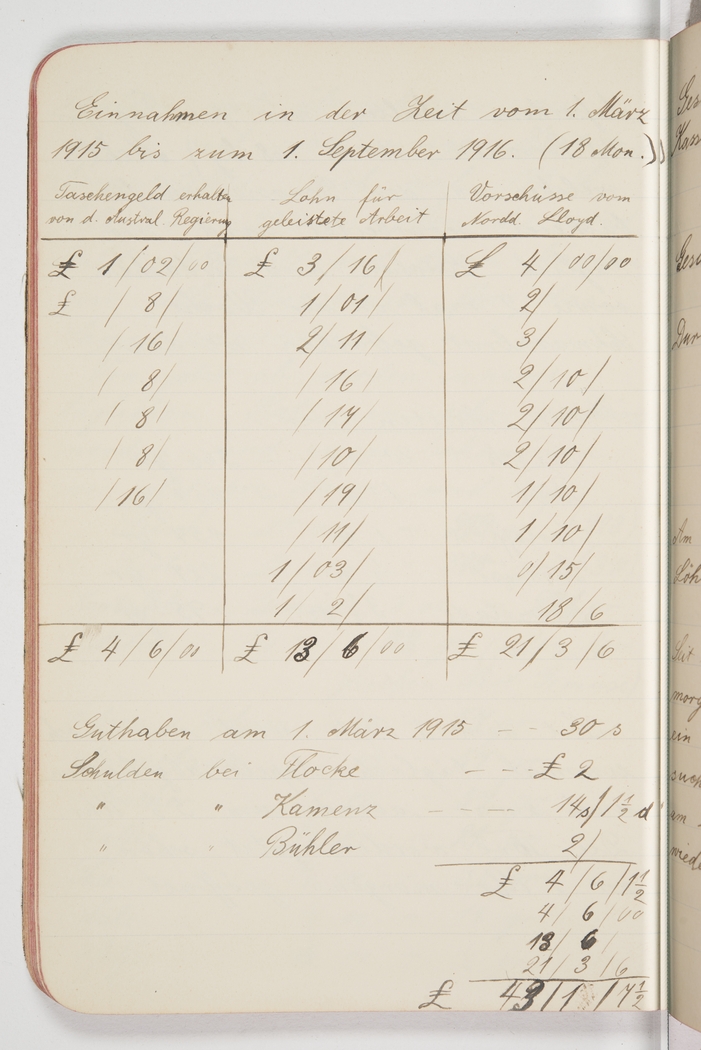 Einnahmen in der Zeit vom 1. März
1915 bis zum 1. September 1916. (18 Mon.)
Taschengeld erhalten Lohn für Vorschüsse vom
von d. Austral. Regierung geleistete Arbeit Nordd. Lloyd.
£ 1/02/00 £ 3/16/ £ 4/00/00
£ /8/ 1/01/ 2/
/16/ 2/11/ 3/
/8/ /16/ 2/10/
/8/ /14/ 2/10/
/8/ /10/ 2/10/
/16/ /19/ 1/10/
/11/ 1/10/
1/03/ 0/15/
1/2/ 18/6
£ 4/6/00 £ 13/6/00 £ 21/3/6
Guthaben am 1. März 1915 -- 30 s
Schulden bei Flocke --- £ 2
" " Kamenz ---- 14s/1½ d
" " Bühler 2/
£ 4/6/1½
4/6/00
13/6/
21/3/6
£ 43/1/7½